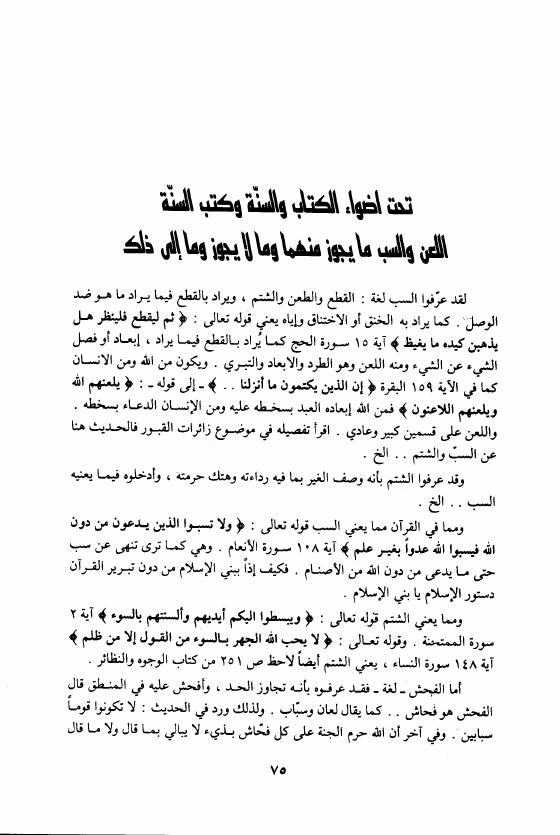 تحت اضواء الكتاب والسنّة وكتب السنّة
اللعن والسب ما يجوز منهما وما لا يجوز وما إلى ذلك
لقد عرّفوا السب لغة : القطع والطعن والشتم ، ويراد بالقطع فيما يراد ما هو ضد
الوصل . كما يراد به الخنق أو الاختناق وإياه يعني قوله تعالى : ﴿ ثم ليقطع فلينظر هل
يذهبن كيده ما يغيظ ﴾ آية ١٥ سورة الحج كما يُراد بالقطع فيما يراد ، إبعاد أو فصل
الشيء عن الشيء ومنه اللعن وهو الطرد والابعاد والتبري . ويكون من الله ومن الانسان
كما في الآية ١٥٩ البقرة ﴿ إن الذين يكتمون ما أنزلنا . . ﴾ - إلى قوله - : ﴿ يلعنهم الله
ويلعنهم اللاعنون ﴾ فمن الله إبعاده العبد بسخطه عليه ومن الإنسان الدعاء بسخطه .
واللعن على قسمين كبير وعادي . اقرأ تفصيله في موضوع زائرات القبور فالحديث هنا
عن السبّ والشتم . . الخ .
وقد عرفوا الشتم بأنه وصف الغير بما فيه رداءته وهتك حرمته ، وأدخلوه فيما يعنيه
السب . . الخ .
ومما في القرآن مما يعني السب قوله تعالى : ﴿ ولا تسبوا الذين يدعون من دون
الله فيسبوا الله عدواً بغير علم ﴾ آية ١٠٨ سورة الأنعام . وهي كما ترى تنهى عن سب
حتى ما يدعى من دون الله من الأصنام . فكيف إذاً ببني الإسلام من دون تبرير القرآن
دستور الإسلام يا بني الإسلام .
ومما يعني الشتم قوله تعالى : ﴿ ويبسطوا اليكم أيديهم وألسنتهم بالسوء ﴾ آية ٢
سورة الممتحنة . وقوله تعالى : ﴿ لا يحب الله الجهر بالسوء من القول إلا من ظلم ﴾
آية ١٤٨ سورة النساء ، يعني الشتم أيضاً لاحظ ص ٢٥١ من كتاب الوجوه والنظائر .
أما الفحش - لغة - فقد عرفوه بأنه تجاوز الحد ، وأفحش عليه في المنطق قال
الفحش هو فحاش . . كما يقال لعان وسبّاب . ولذلك ورد في الحديث : لا تكونوا قوماً
سبابين . وفي آخر أن الله حرم الجنة على كل فحّاش بذيء لا يبالي بما قال ولا ما قال
٧٥